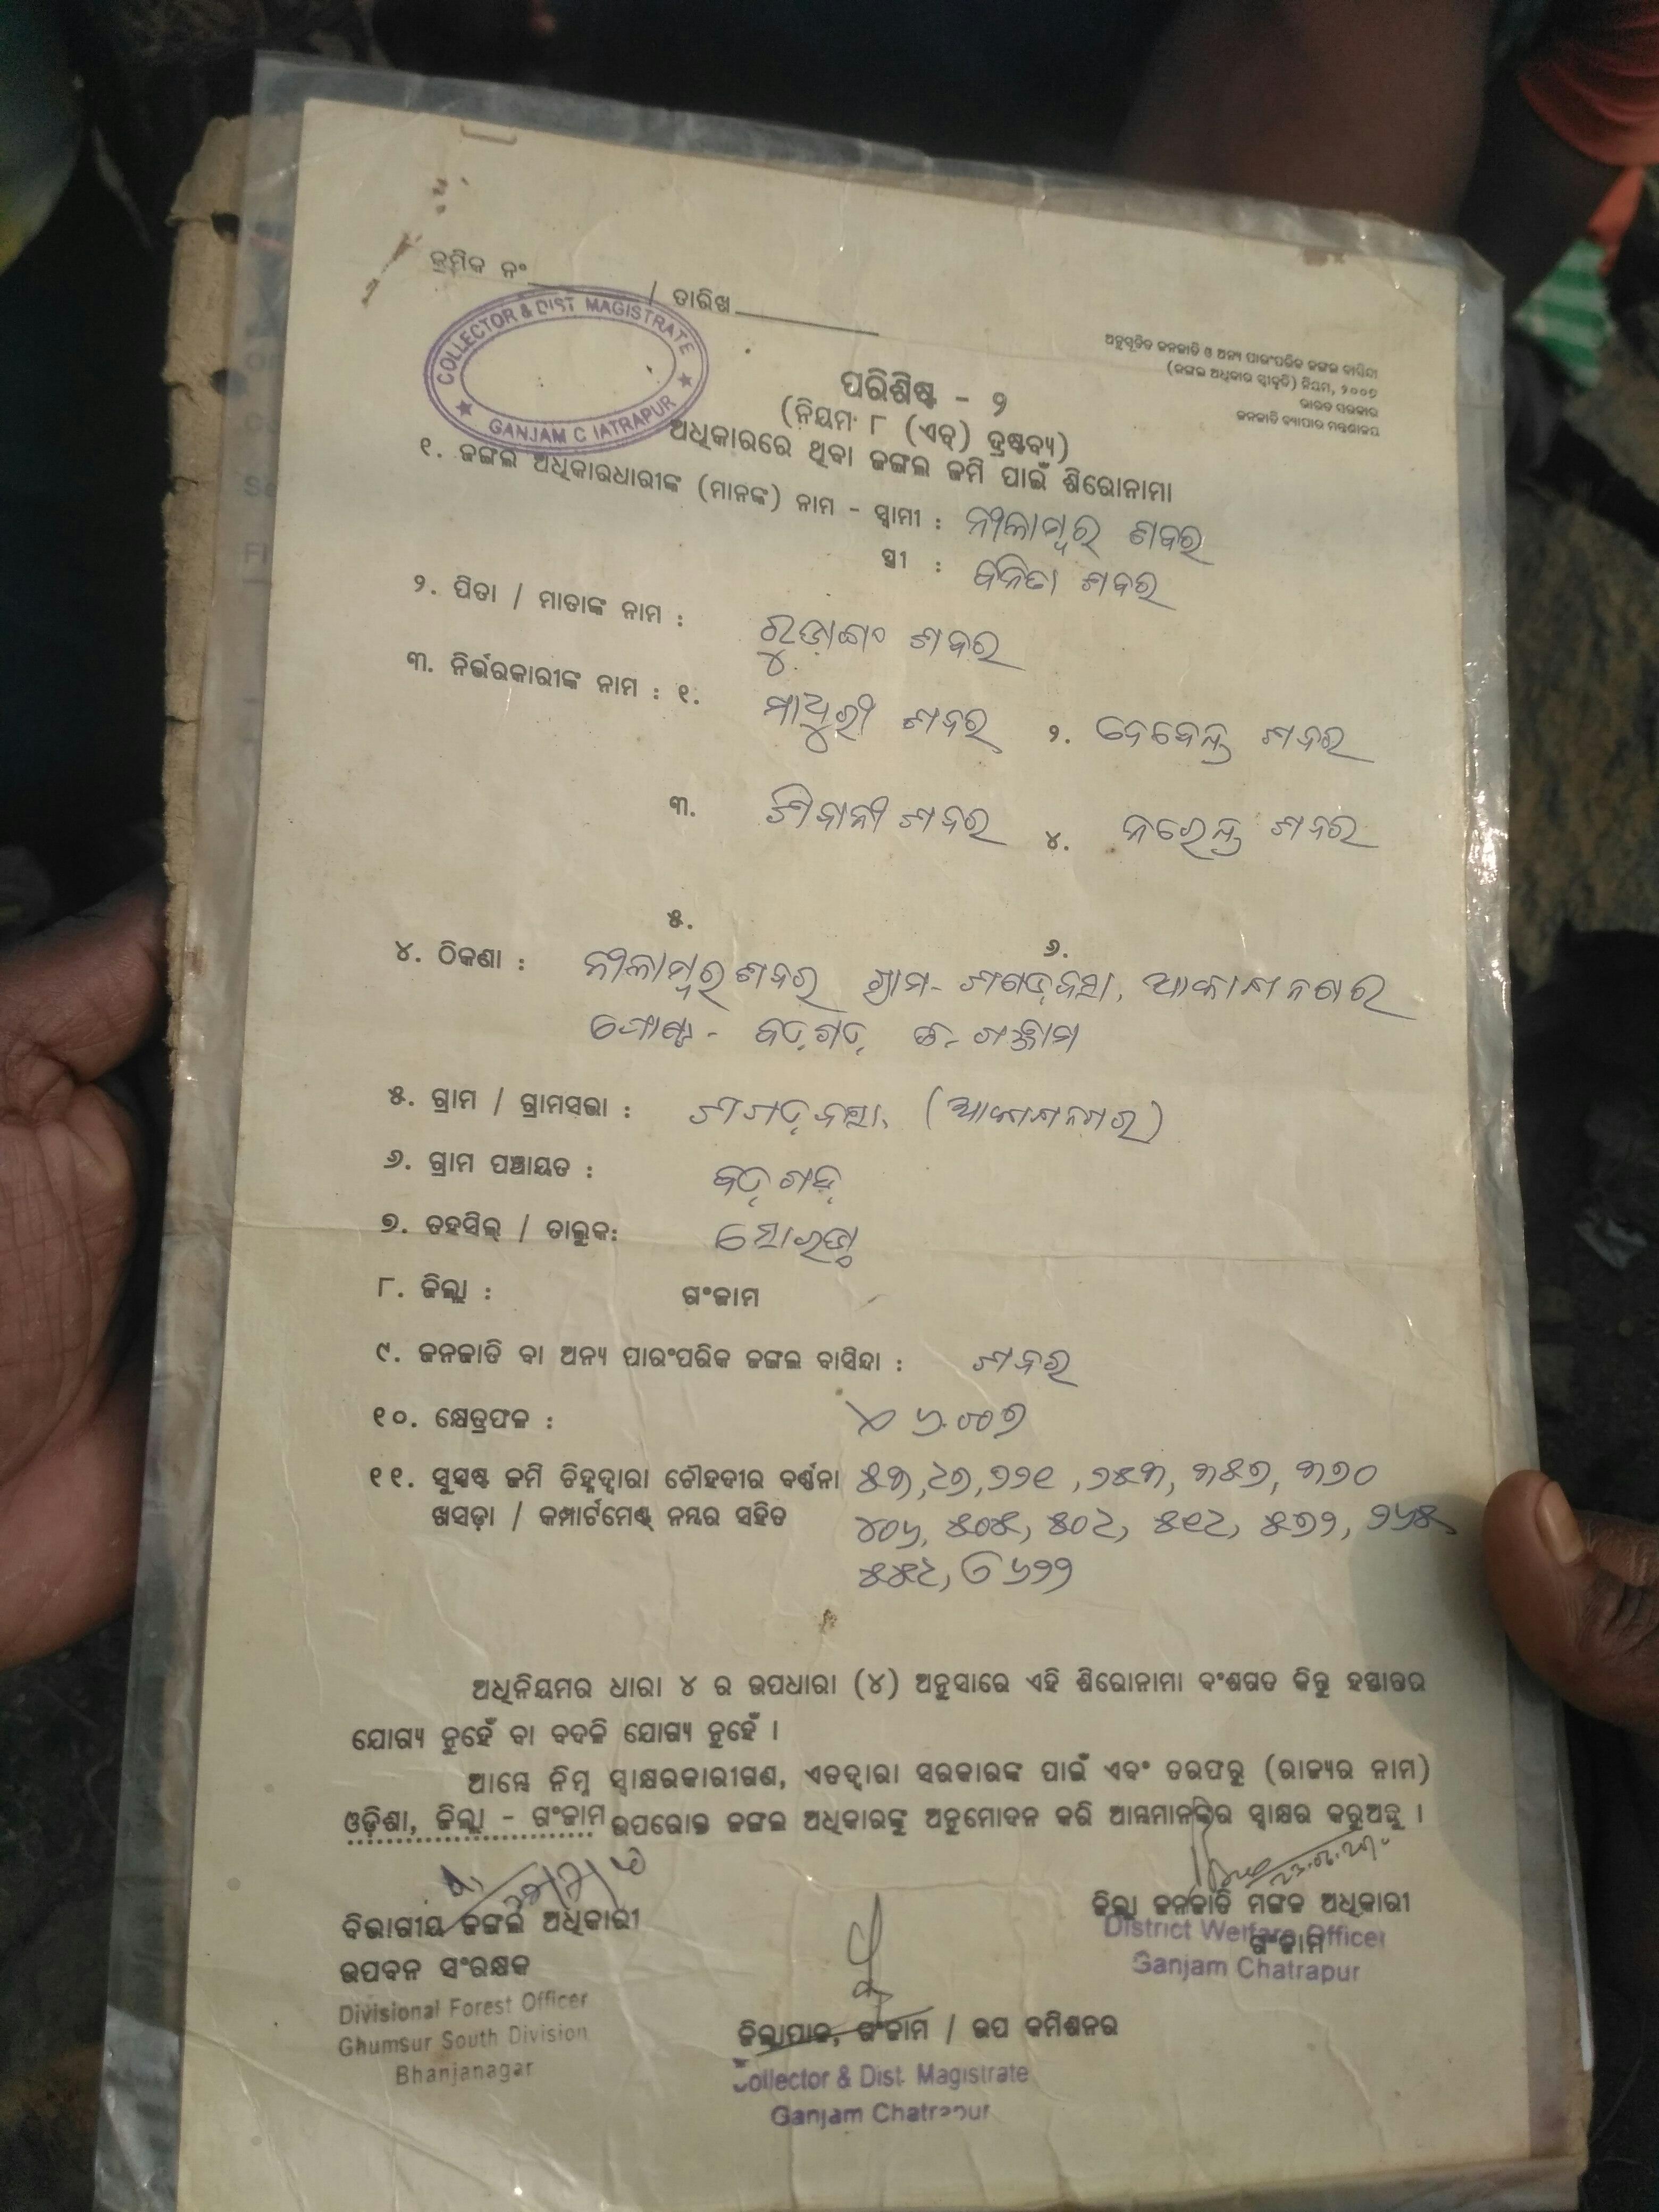 କ୍ରମିକ ନଂ ________ / ତାରିଖ ________
COLLECTOR & DIST. MAGISTRATE
GANJAM C IATRAPUR
ଅନୁସୂଚିତ ଜନଜାତି ଓ ଅନ୍ୟ ପାରଂପରିକ ଜଙ୍ଗଲ ବାସିନ୍ଦା
(ଜଙ୍ଗଲ ଅଧିକାର ସ୍ୱୀକୃତି) ନିୟମ, ୨୦୦୭
ଭାରତ ସରକାର
ଜନଜାତି ବ୍ୟାପାର ମନ୍ତ୍ରଣାଳୟ
ପରିଶିଷ୍ଟ - ୨
(ନିୟମ ୮ (ଏଚ୍) ଦ୍ରଷ୍ଟବ୍ୟ)
ଅଧିକାରରେ ଥିବା ଜଙ୍ଗଲ ଜମି ପାଇଁ ଶିରୋନାମା
୧. ଜଙ୍ଗଲ ଅଧିକାରଧାରୀଙ୍କ (ମାନଙ୍କ) ନାମ - ସ୍ୱାମୀ : ନୀଳାମ୍ବର ଶବର
ସ୍ତ୍ରୀ : ବନିତା ଶବର
୨. ପିତା / ମାତାଙ୍କ ନାମ : ଶବର
୩. ନିର୍ଭରକାରୀଙ୍କ ନାମ : ୧. ମାଧୁରୀ ଶବର ୨. ଦେବେନ୍ଦ୍ର ଶବର
୩. ଶିବାନୀ ଶବର ୪. ନରେନ୍ଦ୍ର ଶବର
୫. ୬.
୪. ଠିକଣା : ନୀଳାମ୍ବର ଶବର ଗ୍ରାମ- ଆକାଶନଗର
ପୋଷ୍ଟ - ବଡ଼ଗଡ଼ ଜି- ଗଞ୍ଜାମ
୫. ଗ୍ରାମ / ଗ୍ରାମସଭା : (ଆକାଶନଗର)
୬. ଗ୍ରାମ ପଞ୍ଚାୟତ : ବଡ଼ଗଡ଼
୭. ତହସିଲ୍ / ତାଲୁକ: ସୋରଡ଼ା
୮. ଜିଲ୍ଲା : ଗଂଜାମ
୯. ଜନଜାତି ବା ଅନ୍ୟ ପାରଂପରିକ ଜଙ୍ଗଲ ବାସିନ୍ଦା : ଶବର
୧୦. କ୍ଷେତ୍ରଫଳ : ୬.୦୦୭
୧୧. ସୁସ୍ପଷ୍ଟ ଜମି ଚିହ୍ନଦ୍ୱାରା ଚୌହଦୀର ବର୍ଣ୍ଣନା ୫୩, ୨୭, ୨୨୧, ୨୫୩, ୩୫୭, ୩୭୦
ଖସଡ଼ା / କମ୍ପାର୍ଟମେଣ୍ଟ୍ ନମ୍ବର ସହିତ ୪୦୬, ୫୦୫, ୫୦୨, ୫୧୨, ୫୭୨, ୨୬୫
୫୫୨, ୬୨୨
ଅଧିନିୟମର ଧାରା ୪ ର ଉପଧାରା (୪) ଅନୁସାରେ ଏହି ଶିରୋନାମା ବଂଶଗତ କିନ୍ତୁ ହସ୍ତାନ୍ତର
ଯୋଗ୍ୟ ନୁହେଁ ବା ବଦଳି ଯୋଗ୍ୟ ନୁହେଁ ।
ଆମ୍ଭେ ନିମ୍ନ ସ୍ୱାକ୍ଷରକାରୀଗଣ, ଏତଦ୍ୱାରା ସରକାରଙ୍କ ପାଇଁ ଏବଂ ତରଫରୁ (ରାଜ୍ୟର ନାମ)
ଓଡ଼ିଶା, ଜିଲ୍ଲା - ଗଂଜାମ ଉପରୋକ୍ତ ଜଙ୍ଗଲ ଅଧିକାରଙ୍କୁ ଅନୁମୋଦନ କରି ଆମ୍ଭମାନଙ୍କର ସ୍ୱାକ୍ଷର କରୁଅଛୁ ।
ବିଭାଗୀୟ ଜଙ୍ଗଲ ଅଧିକାରୀ
ଉପବନ ସଂରକ୍ଷକ
Divisional Forest Officer
Ghumsur South Division
Bhanjanagar
ଜିଲ୍ଲାପାଳ, ଗଂଜାମ / ଉପ କମିଶନର
Collector & Dist. Magistrate
Ganjam Chatrapur
ଜିଲ୍ଲା ଜନଜାତି ମଙ୍ଗଳ ଅଧିକାରୀ
ଗଂଜାମ
District Welfare Officer
Ganjam Chatrapur